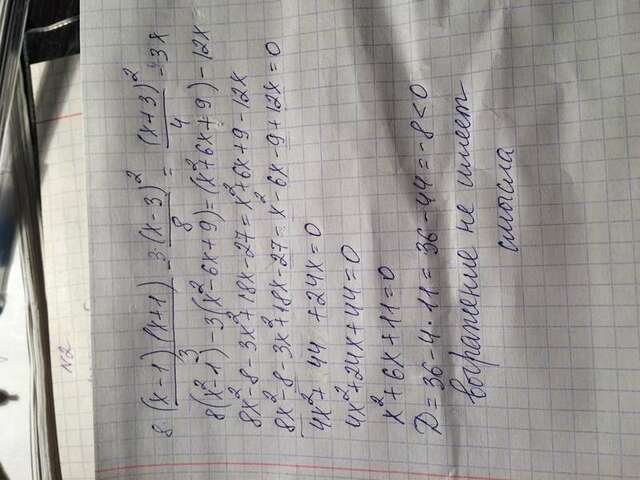 N2
8 (x-1)(x+1)/3 - 3 (x-3)²/8 = (x+3)²/4 - 3x
8(x²-1)-3(x²-6x+9)=(x²+6x+9)-12x
8x²-8-3x²+18x-27=x²+6x+9-12x
8x²-8-3x²+18x-27-x²-6x-9+12x=0
4x²+ 44 +24x=0
4x²+24x+44=0
x²+6x+11=0
D=36-4·11=36-44=-8<0
выражение не имеет
смысла